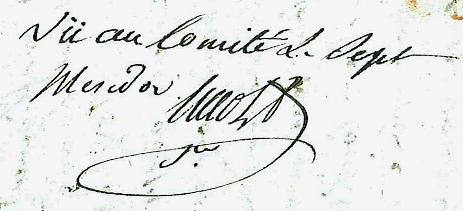 Vü au Comité Le Sept
Mesidor